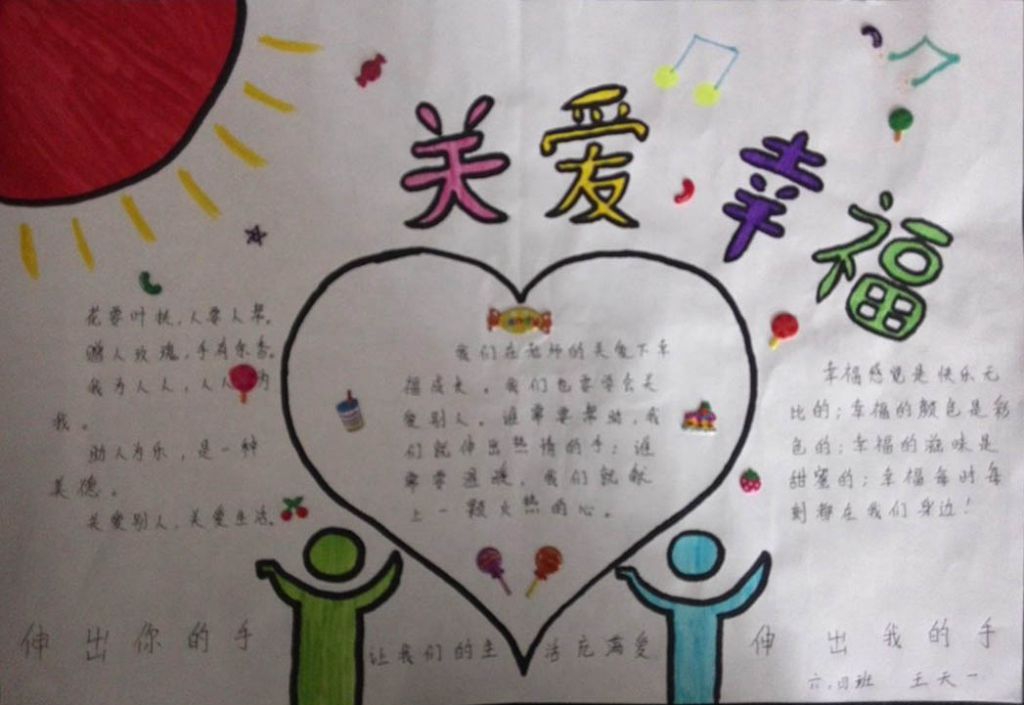 关爱幸福
花要叶扶,人要人帮。
赠人玫瑰,手有余香。
我为人人,人人为
我。
助人为乐,是一种
美德。
关爱别人,关爱生活。
我们在老师的关爱下幸
福成长。我们也要学会关
爱别人。谁需要帮助,我
们就伸出热情的手;谁
需要温暖,我们就献
上一颗火热的心。
幸福感觉是快乐无
比的;幸福的颜色是彩
色的;幸福的滋味是
甜蜜的;幸福每时每
刻都在我们身边!
伸出你的手
让我们的生活充满爱
伸出我的手
六.四班 王天一